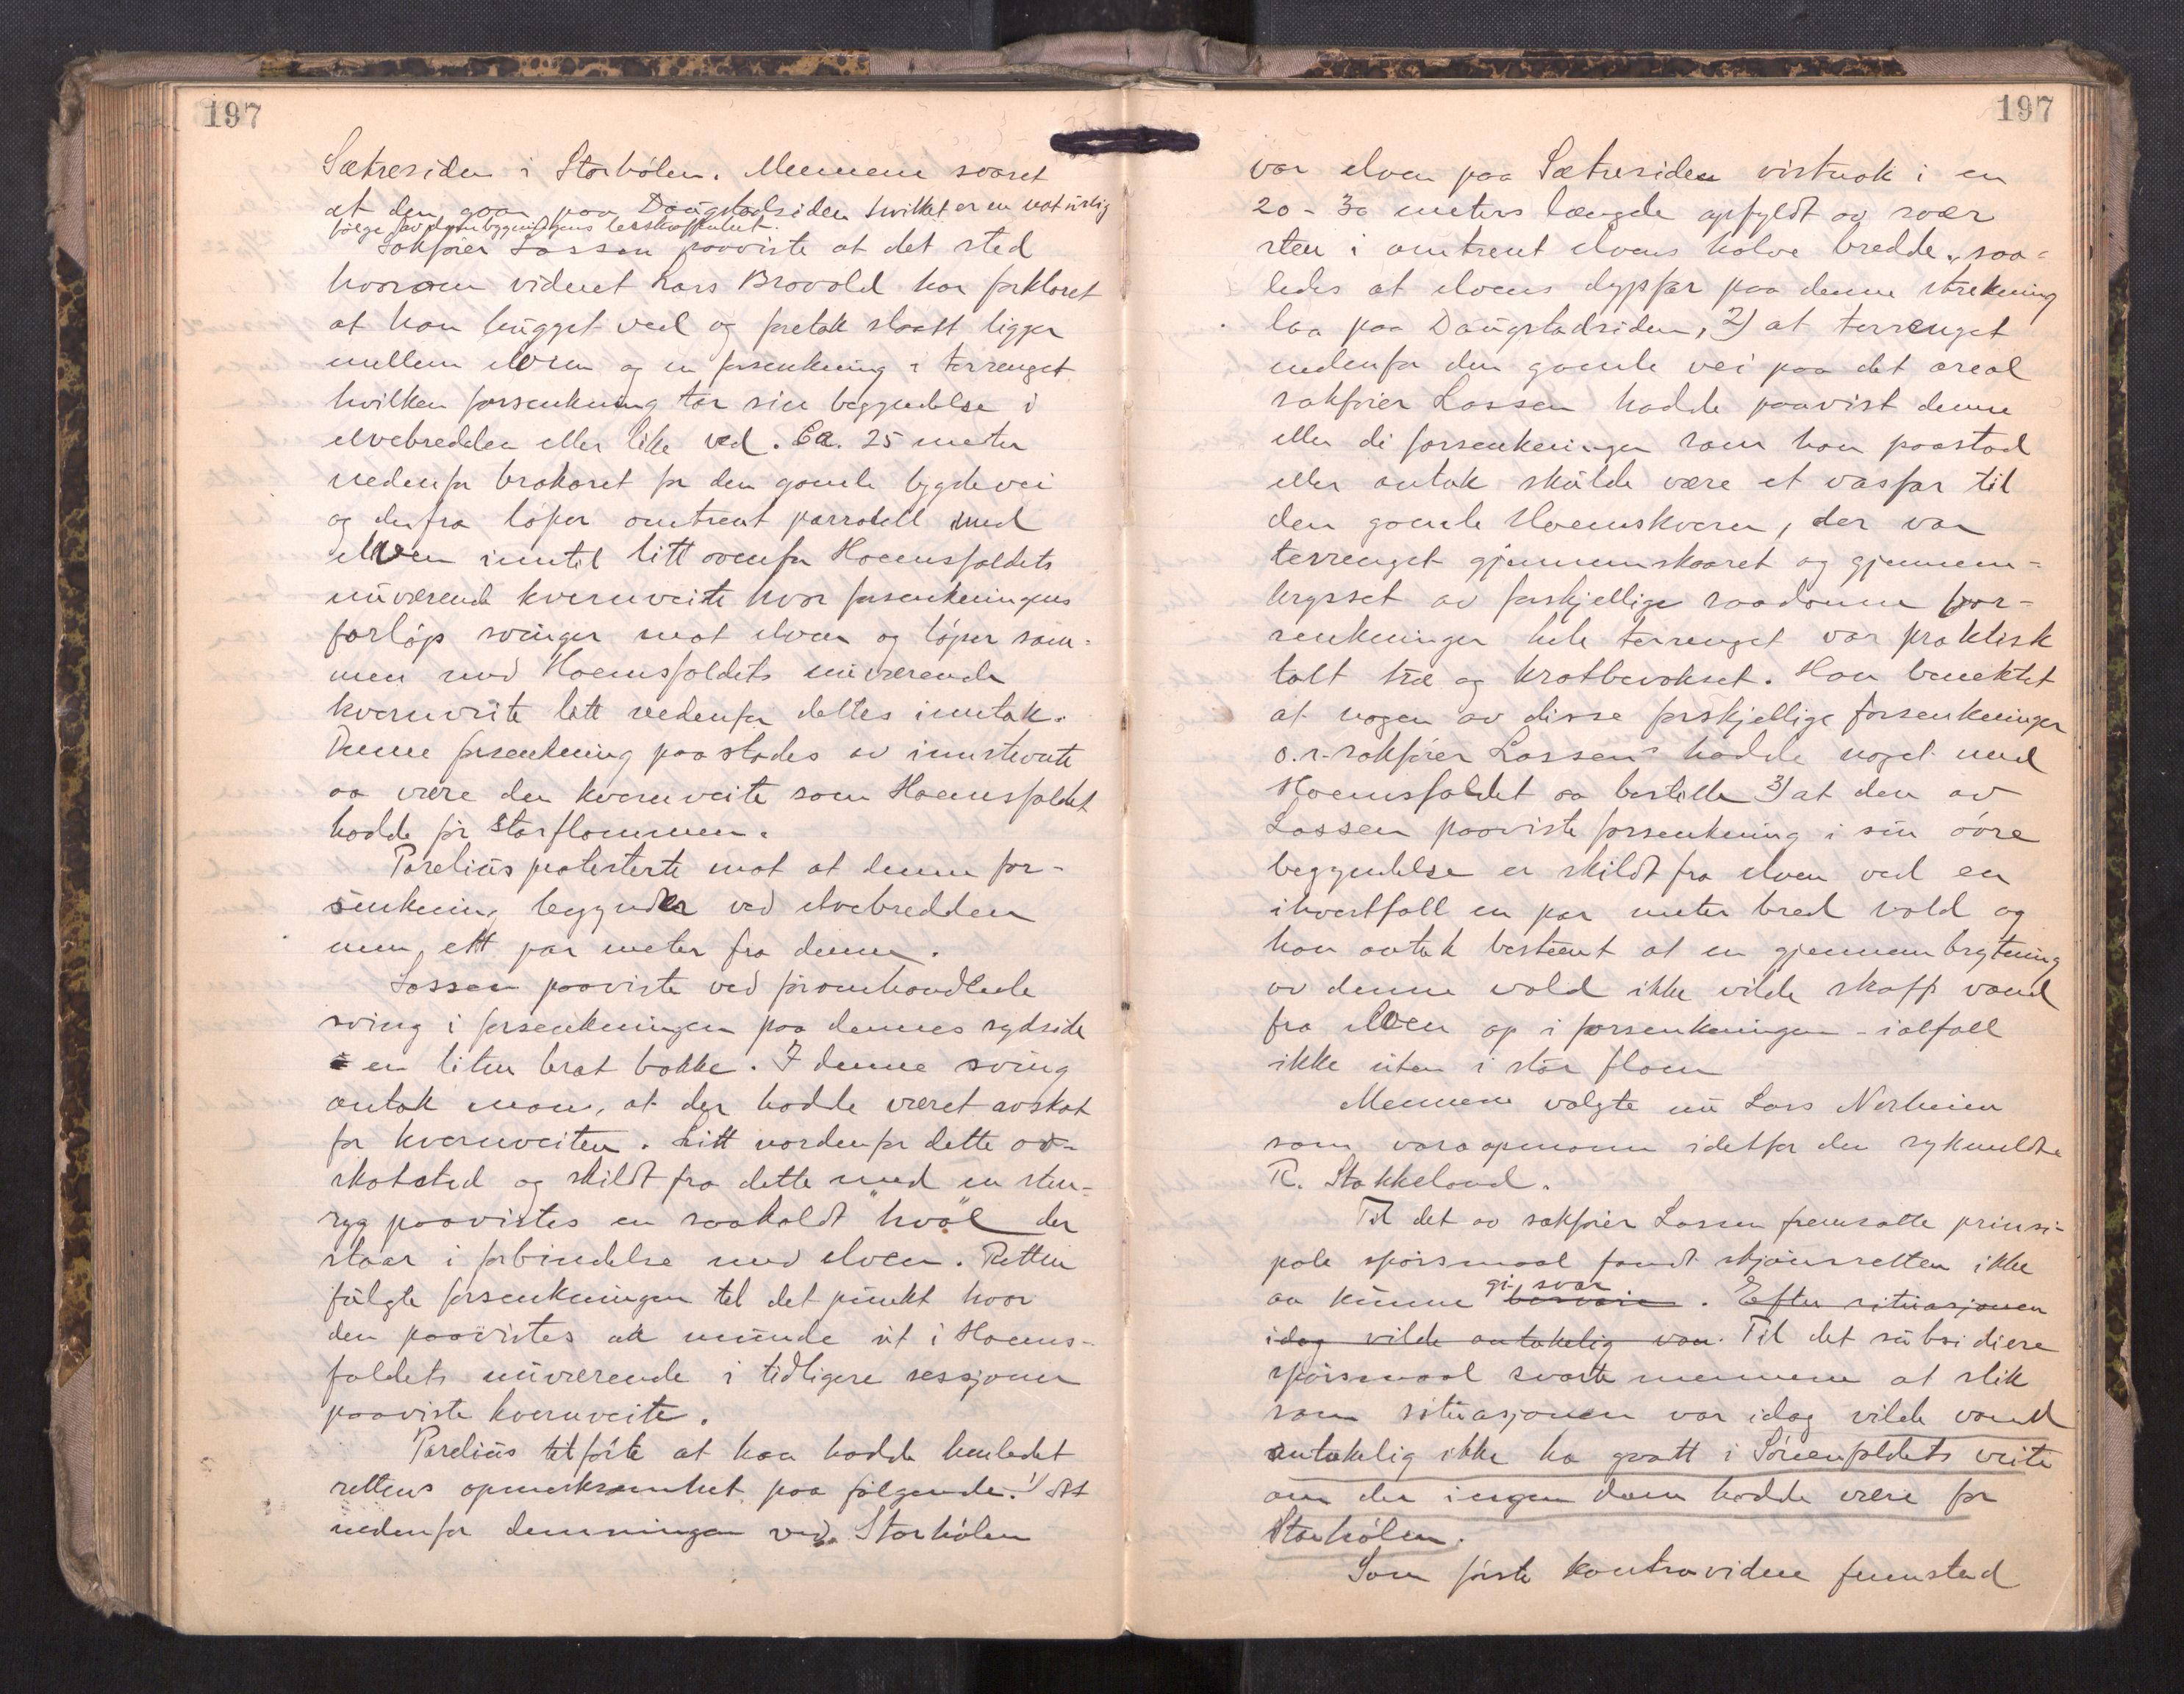 197
Sætresiden i Storhölen. Mennene svaret
at den gaar paa Daugstadsiden hvilket er en natürlig
følge av dembygningens beskaffenhet.
Sakfører Lassen paaviste at det sted
hvorom vidnet Lars Bravold har forklaret
at han hugget ved og foretok slaatt ligger
mellem elven og en forsenkning i terrenget
hvilken forsenkning tar sin begyndelse i
elvebredden eller like ved. Ca. 25 meter
nedenfor brokaret for den gamle bygdevei
og derfra løper omtrent parralell med
elven inntil litt ovenfor Hoemsfaldets
nüværende kvernveite hvor forsenkningens
forløp svinger mot elven og løper sam-
men med Hoemsfaldets nüværende
kvernveite litt nedenfor dettes inntak.
Denne forsenkning paastodes av innstevnte
aa være den kvernveite som Hoemsfaldet
hadde før storflommen.
Parelius protesterte mot at denne for-
senkning begynder ved elvebredden
men ett par meter fra denne.
Lassen paaviste ved føromhandlede
sving i forsenkningen paa dennes sydside
en liten brat bakke. I denne sving
antok man, at der hadde været avskot
for kvernveiten. Litt nordenfor dette av-
skotsted og skildt fra dette med en sten-
ryg paavistes en saakaldt "hvøl" der
staar i forbindelse med elven. Retten
fülgte forsenkningen til det pünkt hvor
den paavistes at münde üt i Hoems-
faldets nüværende i tidligere sessjoner
paaviste kvernveite.
Parelius tilførte at han hadde henledet
rettens opmerksomhet paa følgende: 1) At
nedenfor demningen ved Storhölen
197
var elven paa Sætresiden vistnok i en
20 - 30 meters længde opfyldt av svær
sten i omtrent elvens halve bredde, saa-
ledes at elvens dypfar paa denne strekning
laa paa Daugstadsiden, 2) at terrenget
nedenfor den gamle vei paa det areal
sakfører Lassen hadde paavist denne
eller di forsenkninger som han paastod
eller antok skülde være et vasfar til
den gamle Hoemskvern, der var
terrenget gjennemskaaret og gjennem-
krysset av forskjellige saadanne for-
senkninger hele terrenget var praktisk
talt træ og kratbevokset. Han benektet
at nogen av disse forskjellige forsenkninger
o.r.sakfører Lassens hadde noget med
Hoemsfaldet aa bestille 3) at den av
Lassen paaviste forsenkning i sin øvre
begyndelse er skildt fra elven ved en
ihvertfall en par meter bred vold og
han antok bestemt at en gjennembrytning
av denne vold ikke vilde skaffe vand
fra elven op i forsenkningen - ialfall
ikke üten i stor flom
Mennene valgte nü Lars Norheim
som varaopmann idetfor den sykmeldte
R. Stokkeland.
Til det av sakfører Lassen fremsatte prinsi-
pale spørsmaal fandt skjønsretten ikke
aa künne gi svar. Efter sitüasjonen
idag vilde antakelig van. Til det sübsidiere
spørsmaal svarte mennene at slik
som sitüasjonen var idag vilde vand
antakelig ikke ha gaatt i Sörenfaldets veite
om der ingen dam hadde være for
Storhölen.
Som første kontravidne fremstod